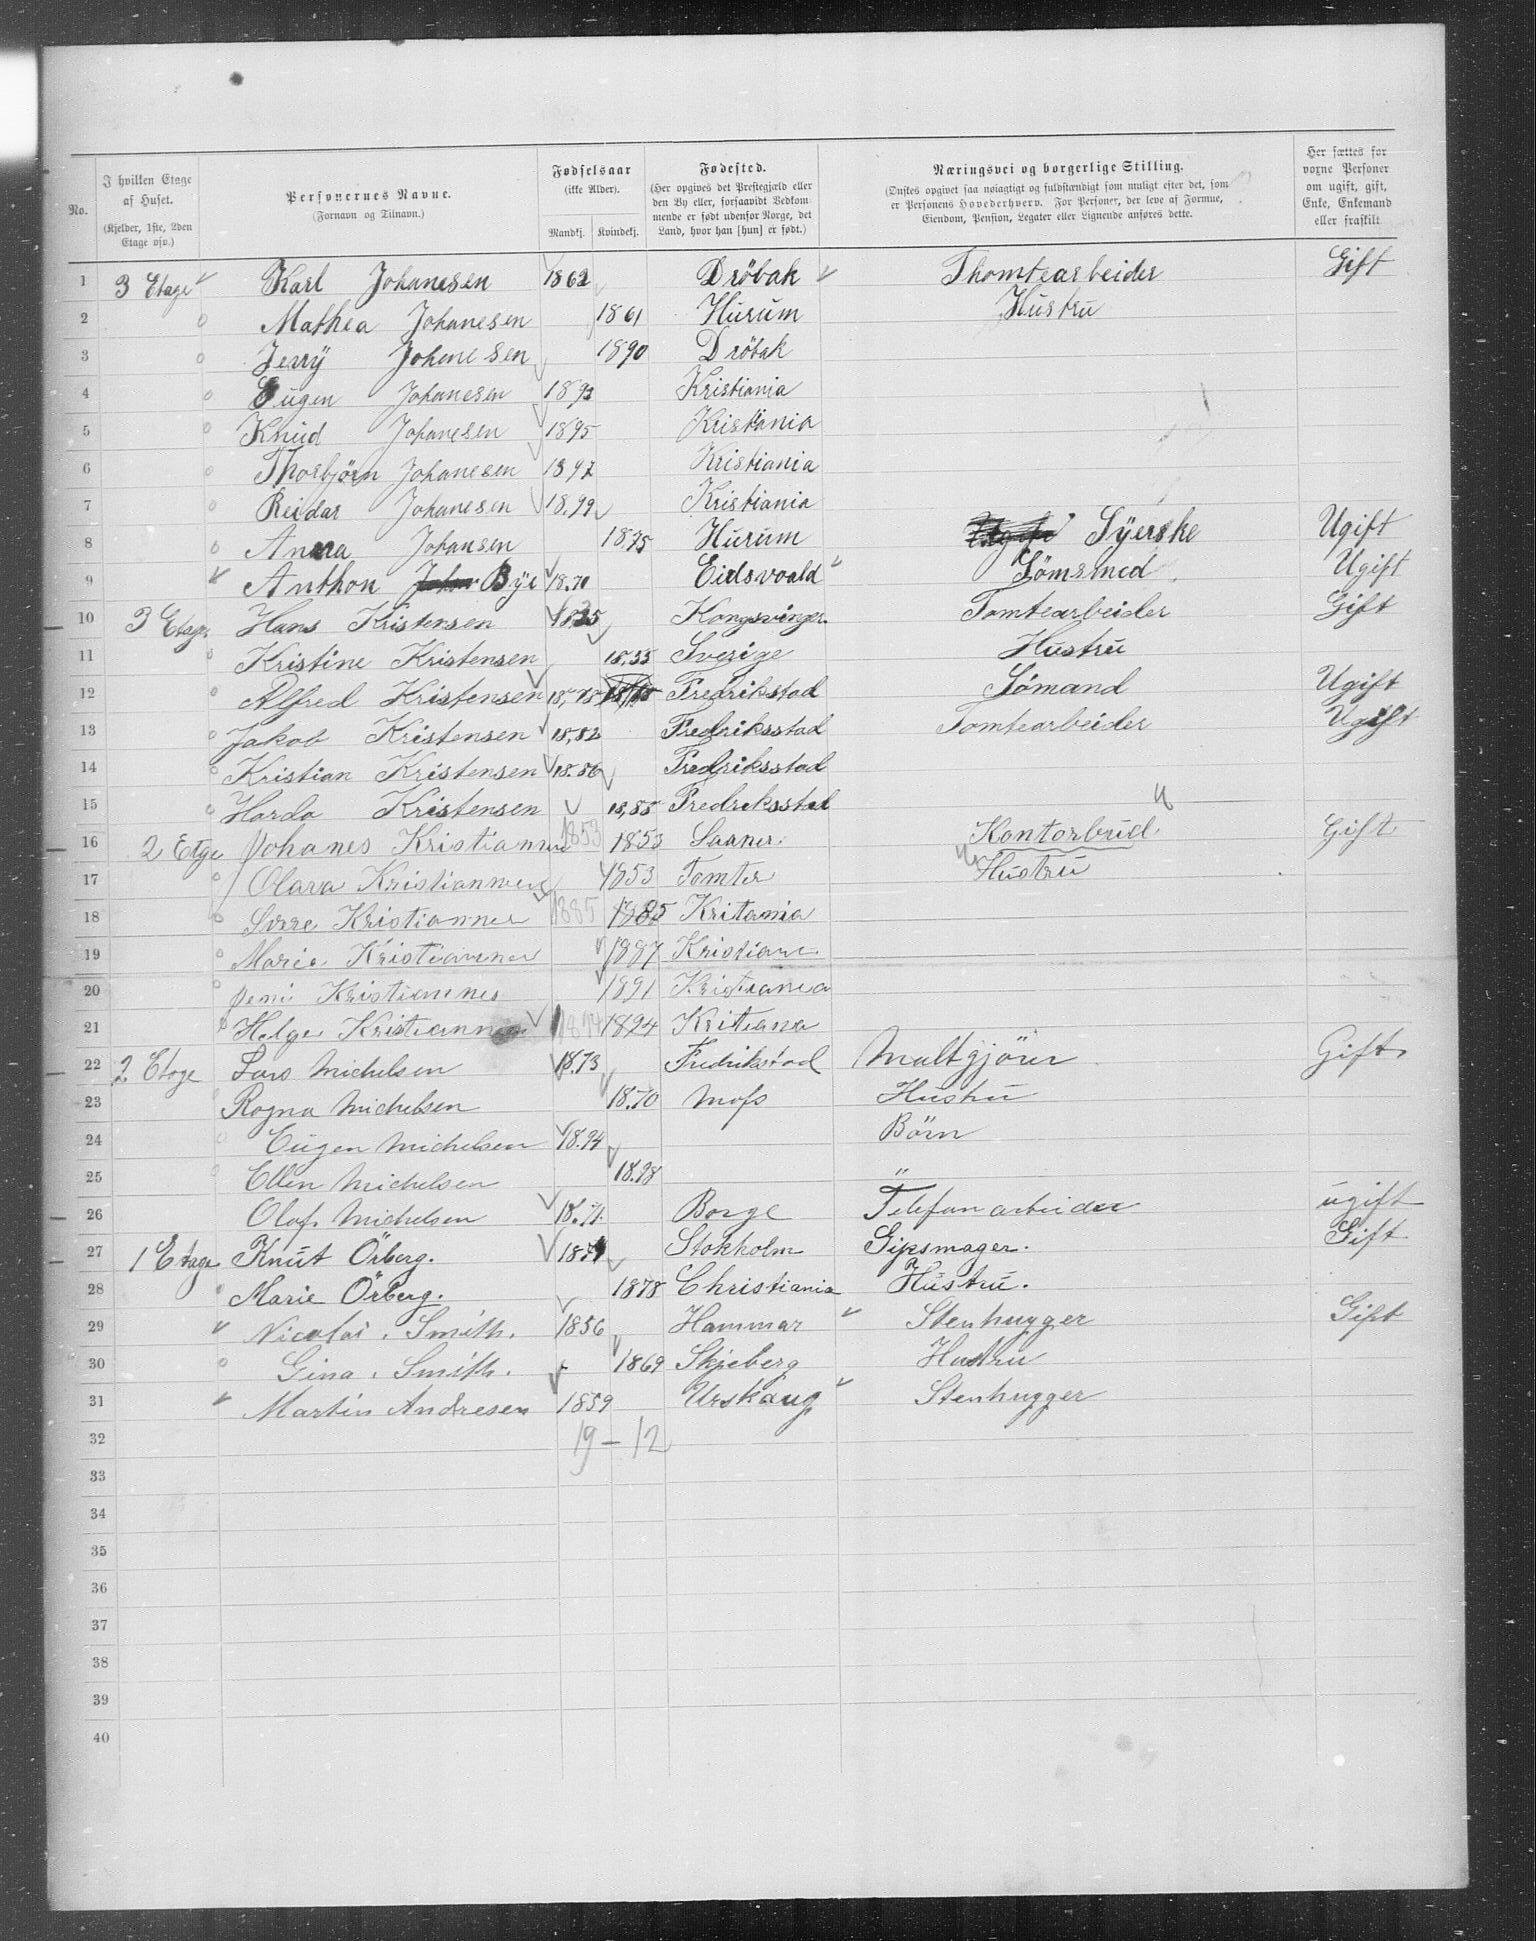 No.
I hvilken Etage af Huset.
(Kjelder, 1ste, 2den Etage osv.)
Personernes Navne.
(Fornavn og Tilnavn.)
Fødselsaar
(ikke Alder).
Mandkj. Kvindekj.
Fødested.
(Her opgives det Prestegjæld eller den By eller, forsaavidt Vedkommende er født udenfor Norge, det Land, hvor han [hun] er født.)
Næringsvei og borgerlige Stilling.
(Ønskes opgivet saa nøiagtigt og fuldstændigt som muligt efter det, som er Personens Hovederhverv. For Personer, der leve af Formue, Eiendom, Pension, Legater eller Lignende anføres dette.
Her sættes for voxne Personer om ugift, gift, Enke, Enkemand eller fraskilt
1 3 Etage Karl Johanesen 1862 Dröbak Thomtearbeider Gift
2 Mathea Johanesen 1861 Hurum Hustru
3 Jerry Johanesen 1890 Dröbak
4 Eugen Johanesen 1893 Kristiania
5 Knud Johanesen 1895 Kristiania
6 Thorbjörn Johanesen 1897 Kristiania
7 Reidar Johanesen 18.99 Kristiania
8 Anna Johansen 1875 Hurum Syerske Ugift
9 Anthon Bye 18.70 Eidsvoald Sömsmed Ugift
10 3 Etage Hans Kristensen Kongsvinger. Tomtearbeider Gift
11 Kristine Kristensen 18,55 Sverige Hustru
12 Alfred Kristensen 18,78 Fredrikstad Sömand Ugift
13 Jakob Kristensen 18,82 Fredriksstad Tomtearbeider Ugift
14 Kristian Kristensen 18.86 Fredriksstad
15 Harda Kristensen 18,85 Fredriksstad
16 2 Etge Johanes Kristiannes 1853 1853 Saaner. Kontorbud Gift
17 Olava Kristiannes 1853 Tomter Hustru
18 Sverre Kristiannes 1885 1885 Kritania
19 Marie Kristiannes 1887 Kristiane
20 Jeni Kristiannes 1891 Kristiania
21 Helge Kristiannes 1894 1894 Kritiana
22 2 Etage Lars Michelsen 18.73 Fredrikstad Maltgjörer Gift.
23 Ragna Michelsen 18.70 Moss Hustru
24 Eugen Michelsen 18.94 Börn
25 Ellen Michelsen 18.98 "
26 Olaf. Michelsen 18.71. Borge Telefonarbeider ugift
27 1 Etage Knut Örberg. Stokholm Gipsmager. Gift
28 Marie Örberg. 1878 Christiania Hustru.
29 Nicolai. Smith. 1856 Hammar Stenhugger Gift
30 Gina. Smith. 1869 Skjeberg Hustru
31 Martin Andresen 1859 Urskaug Stenhugger
32 19 — 12
33
34
35
36
37
38
39
40